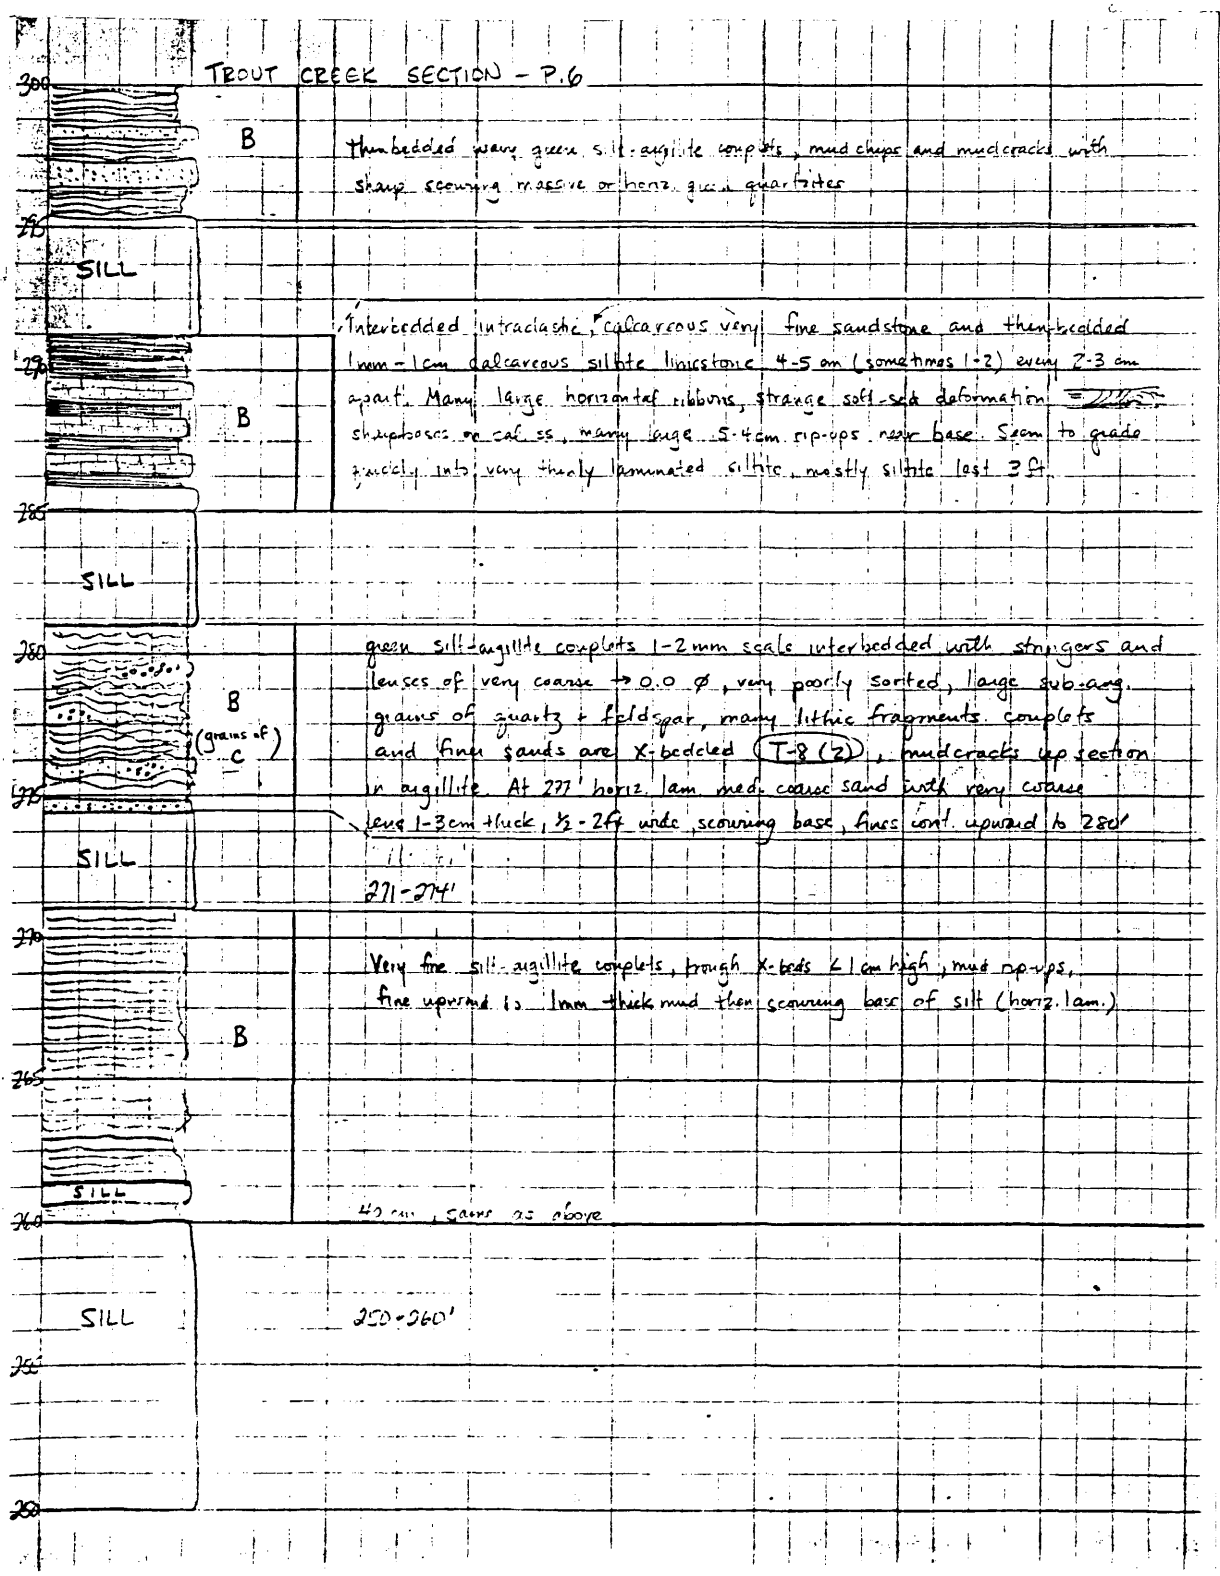 TROUT CREEK SECTION - P.6
300
B
thinbedded wavy green silt-argillite couplets, mud chips and mudcracks with
sharp scouring massive or horiz. green quartzites
295
SILL
Interbedded intraclastic, calcareous very fine sandstone and thin-bedded
290
1mm-1cm calcareous siltite limestone 4-5 cm (sometimes 1-2) every 2-3 cm
apart. Many large horizontal ribbons, strange soft-sed deformation
B
sharp bases on cal. ss, many large .5-4cm rip-ups near base. Seem to grade
quickly into very thinly laminated siltite, mostly siltite last 3 ft
285
SILL
280
green silt-argillite couplets 1-2mm scale interbedded with stringers and
lenses of very coarse → 0.0 ø, very poorly sorted, large sub-ang.
B
grains of quartz + feldspar, many lithic fragments. couplets
(grains of C)
and finer sands are X-bedded (T-8 (2)), mudcracks up section
275
in argillite. At 277' horiz. lam. med. coarse sand with very coarse
lens 1-3cm thick, ½-2ft wide, scouring base, fines cont. upward to 280'
SILL
271-274'
270
Very fine silt-argillite couplets, trough X-beds < 1cm high, mud rip-ups,
fine upward to 1mm thick mud then scouring base of silt (horiz. lam.)
B
265
SILL
40 cm, same as above
260
SILL
250-260'
255
250